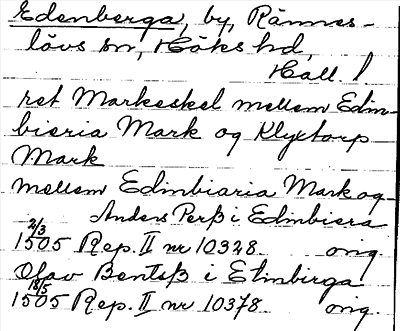 Edenberga, by, Rännes-
lövs sn, Höks hd,
Hall. l
ret Markeskel mellem Edin-
bieria Mark og Klyxtorp
Mark
mellem Edinbiaria Mark og
Anders Perß i Edinbiera
2/3
1505 Rep. II nr 10328 orig.
Olav Bentsß i Etinbirga
18/5
1505 Rep. II nr 10378 orig.